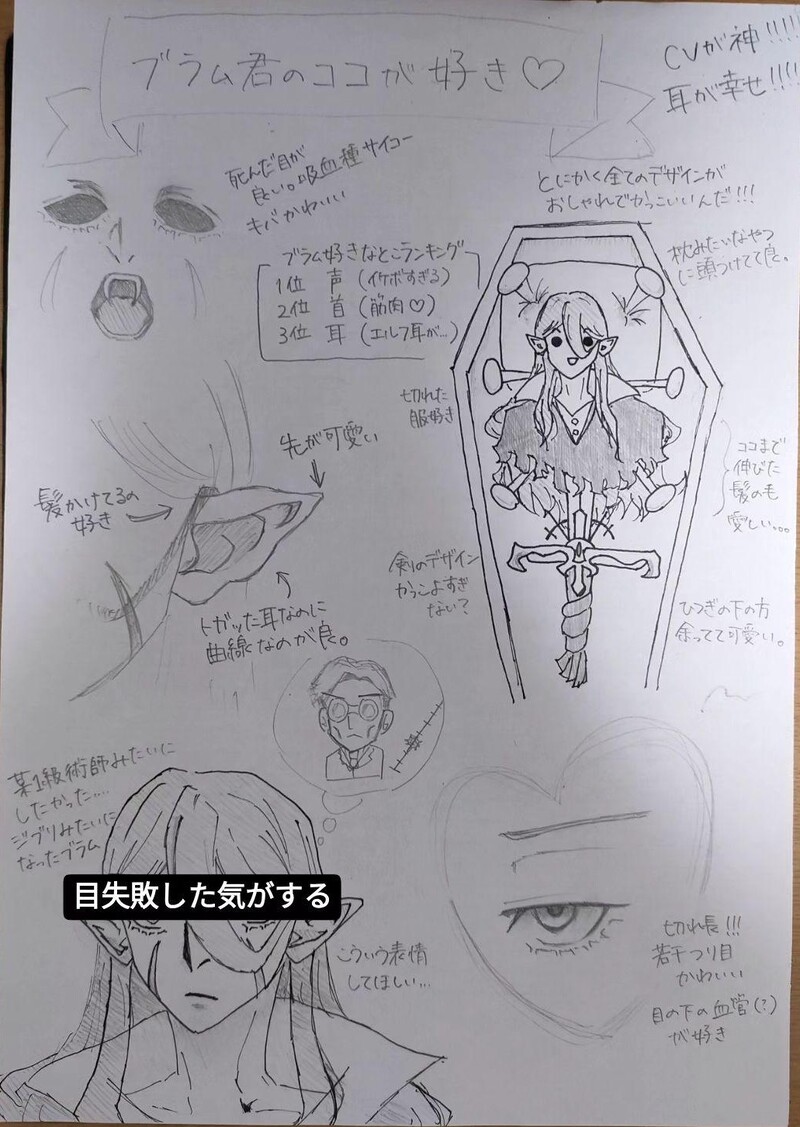 ブラム君のココが好き♡
CVが神!!!!!
耳が幸せ!!!!
死んだ目が
良い。吸血種サイコー
キバかわいい
とにかく全てのデザインが
おしゃれでかっこいいんだ!!!
枕みたいなやつ
に頭つけてて良。
ブラム好きなとこランキング
1位 声(イケボすぎる)
2位 首(筋肉♡)
3位 耳(エルフ耳が…)
切れた
服好き
先が可愛い
髪かけてるの
好き
ココまで
伸びた
髪のも
愛しい。。。
剣のデザイン
かっこよすぎ
ない?
トガッた耳なのに
曲線なのが良。
ひつぎの下の方
余ってて可愛い。
某1級術師みたいに
したかった…
ジブリみたいに
なったブラム
目失敗した気がする
こういう表情
してほしい…
切れ長!!!
若干つり目
かわいい
目の下の血管(?)
が好き